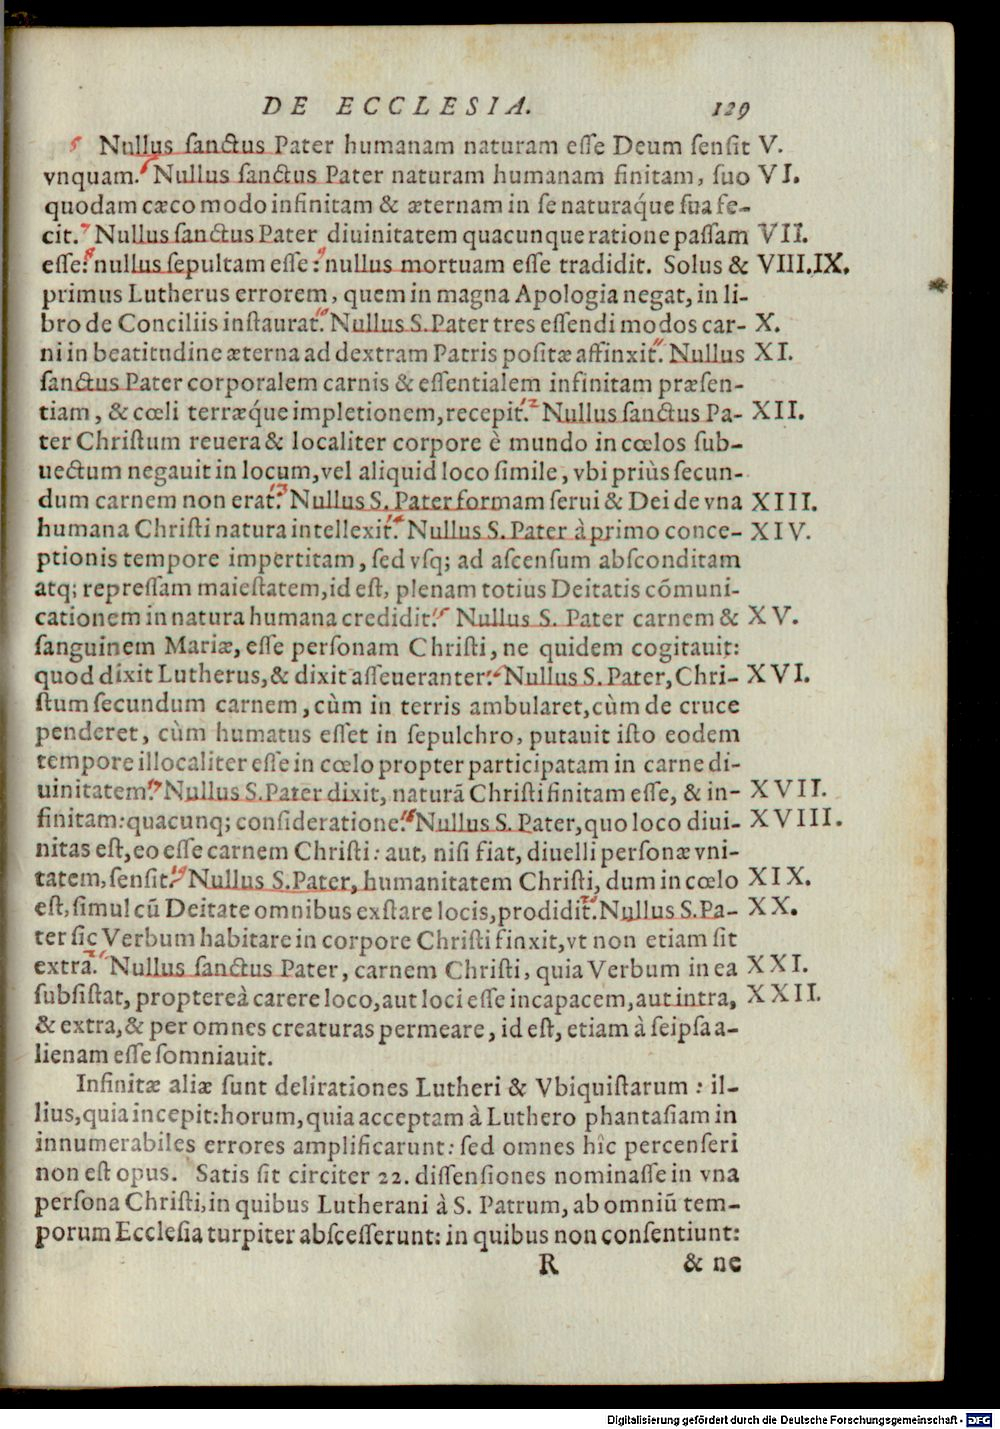 DE ECCLESIA. 129
5 Nullus sanctus Pater humanam naturam esse Deum sensit V.
vnquam. 6 Nullus sanctus Pater naturam humanam finitam, suo VI.
quodam cæco modo infinitam & æternam in se naturaq́ue sua fe-
cit. 7 Nullus sanctus Pater diuinitatem quacunque ratione passam VII.
esse: 8 nullus sepultam esse: 9 nullus mortuam esse tradidit. Solus & VIII.IX.
primus Lutherus errorem, quem in magna Apologia negat, in li-
bro de Conciliis instaurat. 10 Nullus S. Pater tres essendi modos car- X.
ni in beatitudine æterna ad dextram Patris positæ affinxit. 11 Nullus XI.
sanctus Pater corporalem carnis & essentialem infinitam præsen-
tiam, & cœli terræq́ue impletionem, recepit. 12 Nullus sanctus Pa- XII.
ter Christum reuera & localiter corpore è mundo in cœlos sub-
uectum negauit in locum, vel aliquid loco simile, vbi priùs secun-
dum carnem non erat. 13 Nullus S. Pater formam serui & Dei de vna XIII.
humana Christi natura intellexit. 14 Nullus S. Pater à primo conce- XIV.
ptionis tempore impertitam, sed vsq; ad ascensum absconditam
atq; repressam maiestatem, id est, plenam totius Deitatis cõmuni-
cationem in natura humana credidit. 15 Nullus S. Pater carnem & XV.
sanguinem Mariæ, esse personam Christi, ne quidem cogitauit:
quod dixit Lutherus, & dixit asseueranter. 16 Nullus S. Pater, Chri- XVI.
stum secundum carnem, cùm in terris ambularet, cùm de cruce
penderet, cùm humatus esset in sepulchro, putauit isto eodem
tempore illocaliter esse in cœlo propter participatam in carne di-
uinitatem. 17 Nullus S. Pater dixit, naturã Christi finitam esse, & in- XVII.
finitam: quacunq; consideratione. 18 Nullus S. Pater, quo loco diui- XVIII.
nitas est, eo esse carnem Christi: aut, nisi fiat, diuelli personæ vni-
tatem, sensit. 19 Nullus S. Pater, humanitatem Christi, dum in cœlo XIX.
est, simul cũ Deitate omnibus exstare locis, prodidit. 20 Nullus S. Pa- XX.
ter sic Verbum habitare in corpore Christi finxit, vt non etiam sit
extrà. 21 Nullus sanctus Pater, carnem Christi, quia Verbum in ea XXI.
subsistat, proptereà carere loco, aut loci esse incapacem, aut intra, XXII.
& extra, & per omnes creaturas permeare, id est, etiam à seipsa a-
lienam esse somniauit.
Infinitæ aliæ sunt delirationes Lutheri & Vbiquistarum: il-
lius, quia incepit: horum, quia acceptam à Luthero phantasiam in
innumerabiles errores amplificarunt: sed omnes hîc percenseri
non est opus. Satis sit circiter 22. dissensiones nominasse in vna
persona Christi, in quibus Lutherani à S. Patrum, ab omniũ tem-
porum Ecclesia turpiter abscesserunt: in quibus non consentiunt:
R & ne
Digitalisierung gefördert durch die Deutsche Forschungsgemeinschaft - DFG